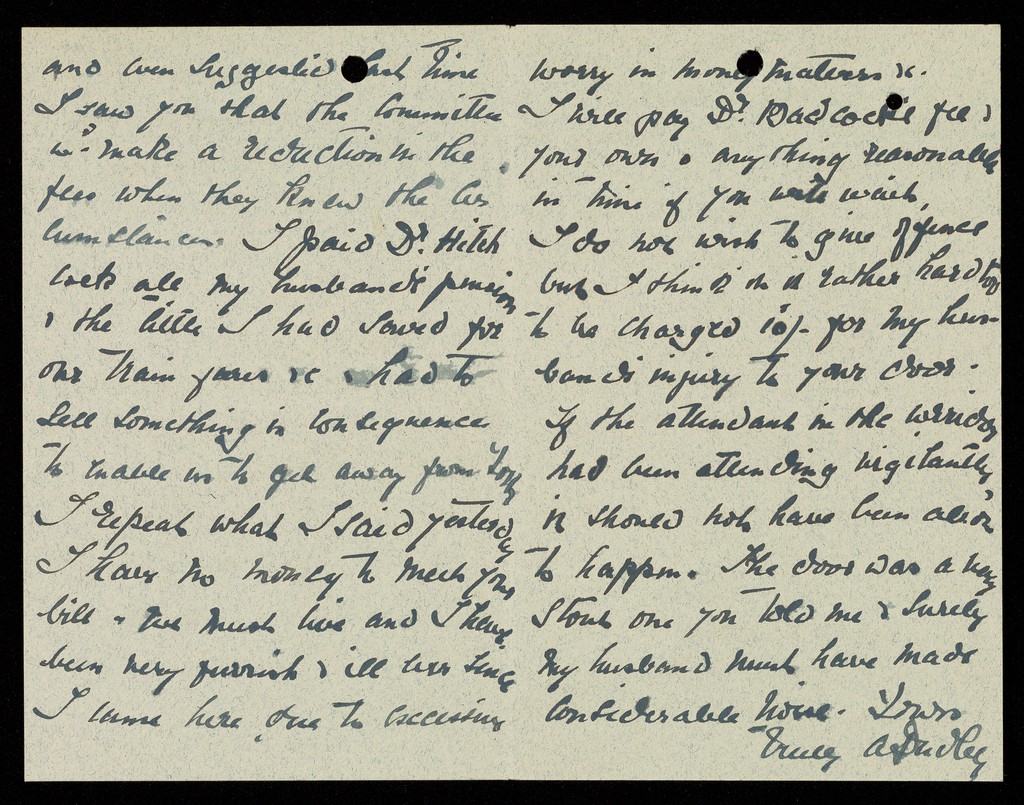 and even suggested last time
I saw you that the Committee
wd make a reduction in the
fees when they knew the cir
cumstances. I paid Dr. Hitch
cock all my husband's pension
& the little I had saved for
our train fares &c & had to
sell something in consequence
to enable us to get away from York
I repeat what I said yesterday
I have no money to meet your
bill - we must live and I have
been very feverish & ill ever since
I came here due to excessive
worry in money matters &c.
I will pay Dr. Badcock's fee &
your own & anything reasonable
in time if you will wait,
I do not wish to give offence
but I think it is rather hard
to be charged 10/- for my hus-
band's injury to your door.
If the attendant in the
had been attending vigilantly
it should not have been able
to happen. The door was a very
stout one you told me & surely
my husband must have made
considerable noise. Yours
truly A Dudley